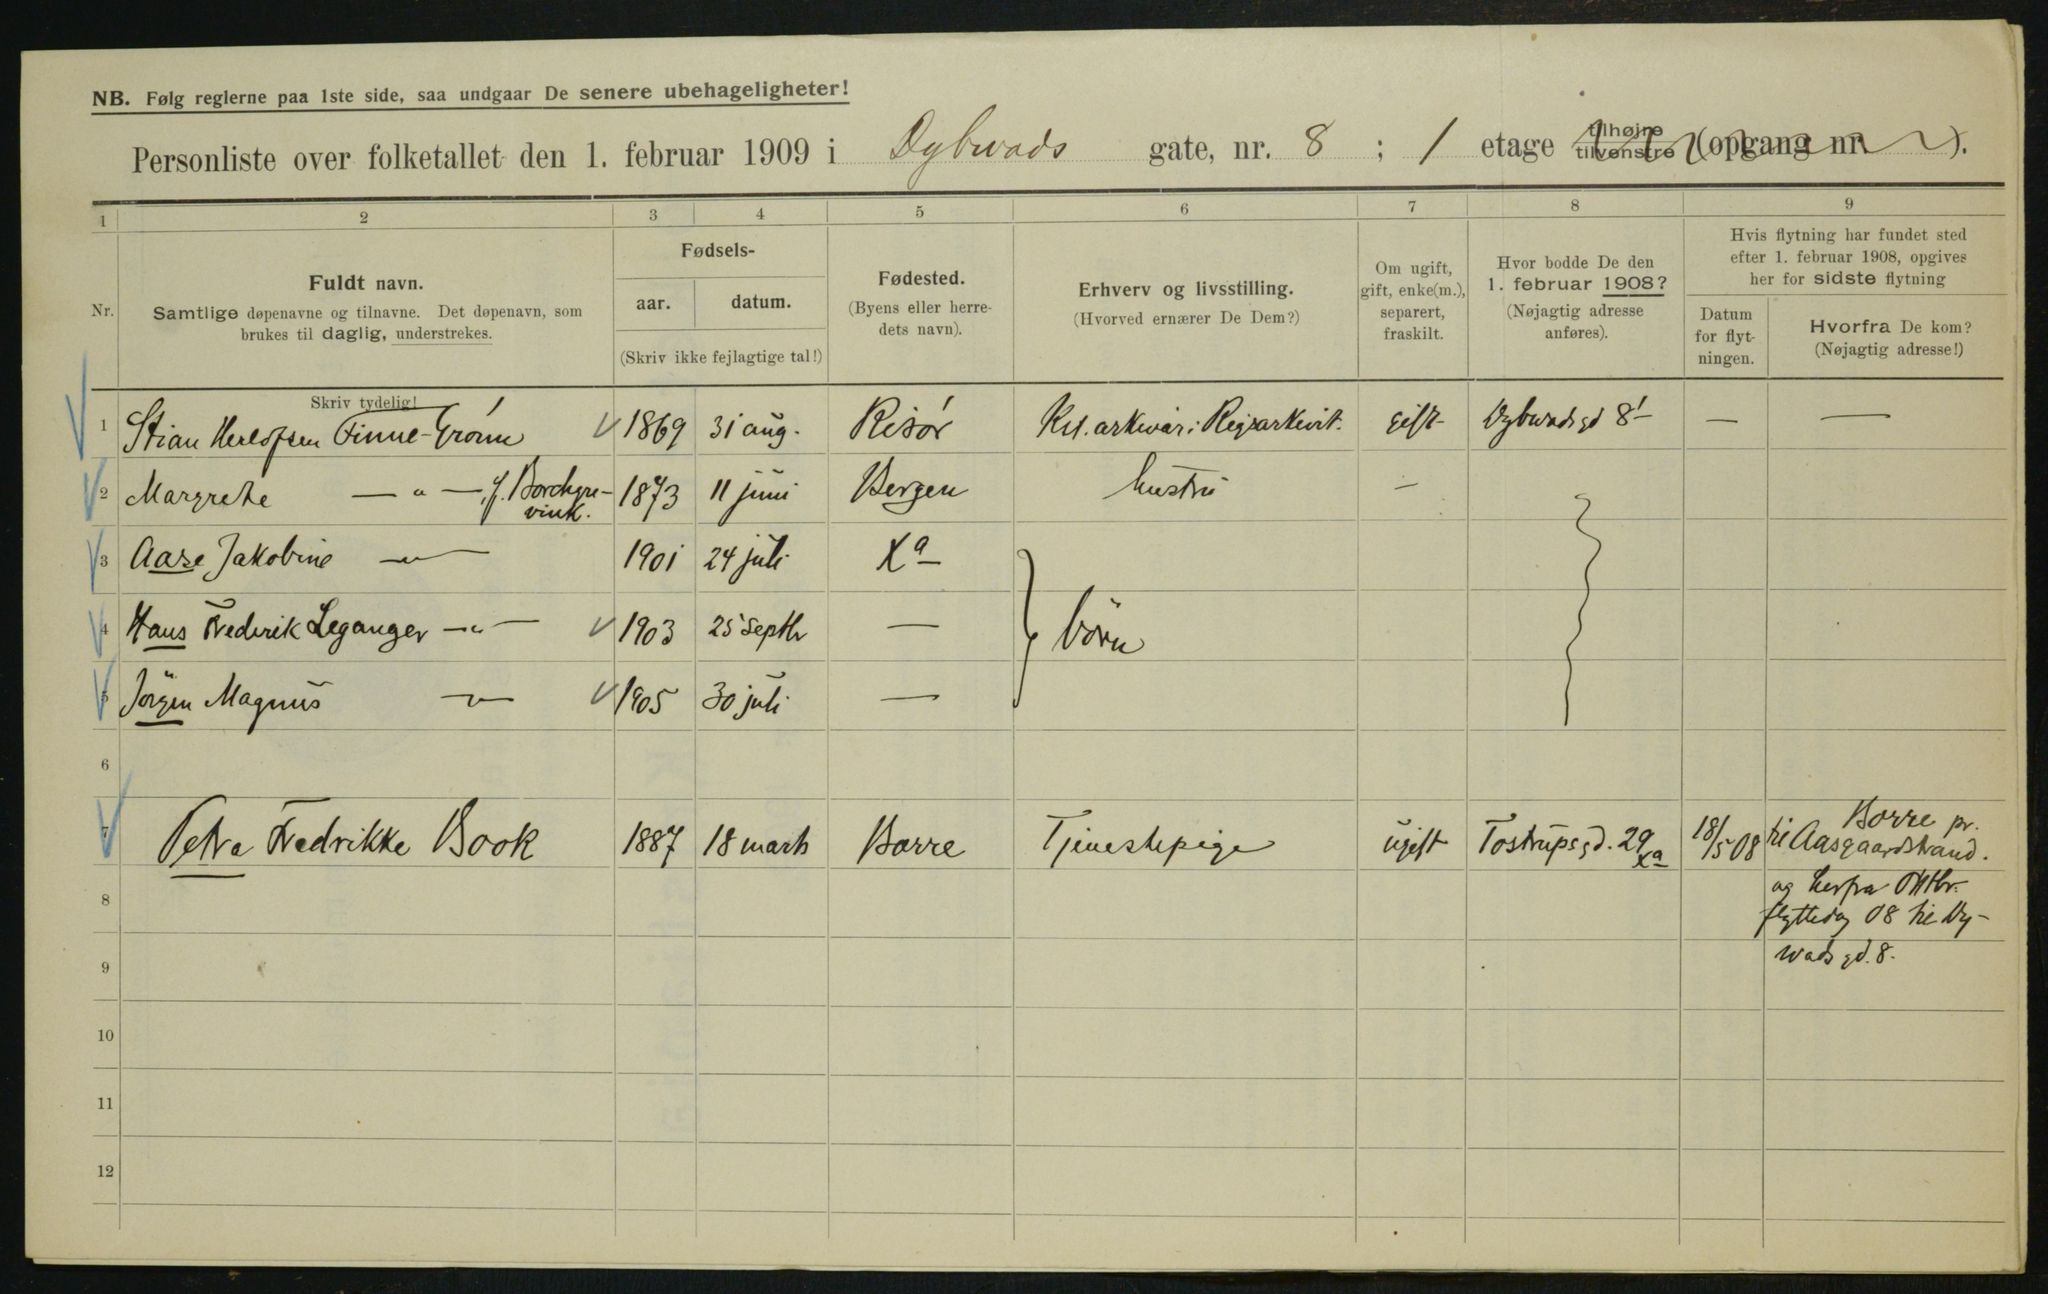 NB. Følg reglerne paa 1ste side, saa undgaar De senere ubehageligheter!
Personliste over folketallet den 1. februar 1909 i Dybwads gate, nr. 8 ; 1 etage tilhøjre tilvenstre (opgang nr. ).
1 2 3 4 5 6 7 8 9
Nr.
Fuldt navn.
Samtlige døpenavne og tilnavne. Det døpenavn, som
brukes til daglig, understrekes.
Fødsels-
aar. datum.
(Skriv ikke fejlagtige tal!)
Fødested.
(Byens eller herre-
dets navn).
Erhverv og livsstilling.
(Hvorved ernærer De Dem?)
Om ugift,
gift, enke(m.),
separert,
fraskilt.
Hvor bodde De den
1. februar 1908?
(Nøjagtig adresse
anføres).
Hvis flytning har fundet sted
efter 1. februar 1908, opgives
her for sidste flytning
Datum
for flyt-
ningen.
Hvorfra De kom?
(Nøjagtig adresse!)
Skriv tydelig!
1 Stian Herlofsen Finne-Grønn 1869 31 aug. Risør Kst. arkivar i Rigsarkivet. gift Dybwadsgd 8 1 — —
2 Margrete — " — f. Borchgre-
vink. 1873 11 juni Bergen hustru —
3 Aase Jakobine — " — 1901 24 juli Xa
4 Hans Fredrik Leganger — " — 1903 25 septbr — børn
5 Jörgen Magnus — " — 1905 30 juli —
6
7 Petra Fredrikke Book 1887 18 marts Borre Tjenestepige ugift Tostrupsgd. 29 Xa 18/5 08 Borre pr.
til Aasgaardstrand.
8 og herfra Oktbr.
flyttedag 08 til Dy-
9 wadsgd. 8.
10
11
12